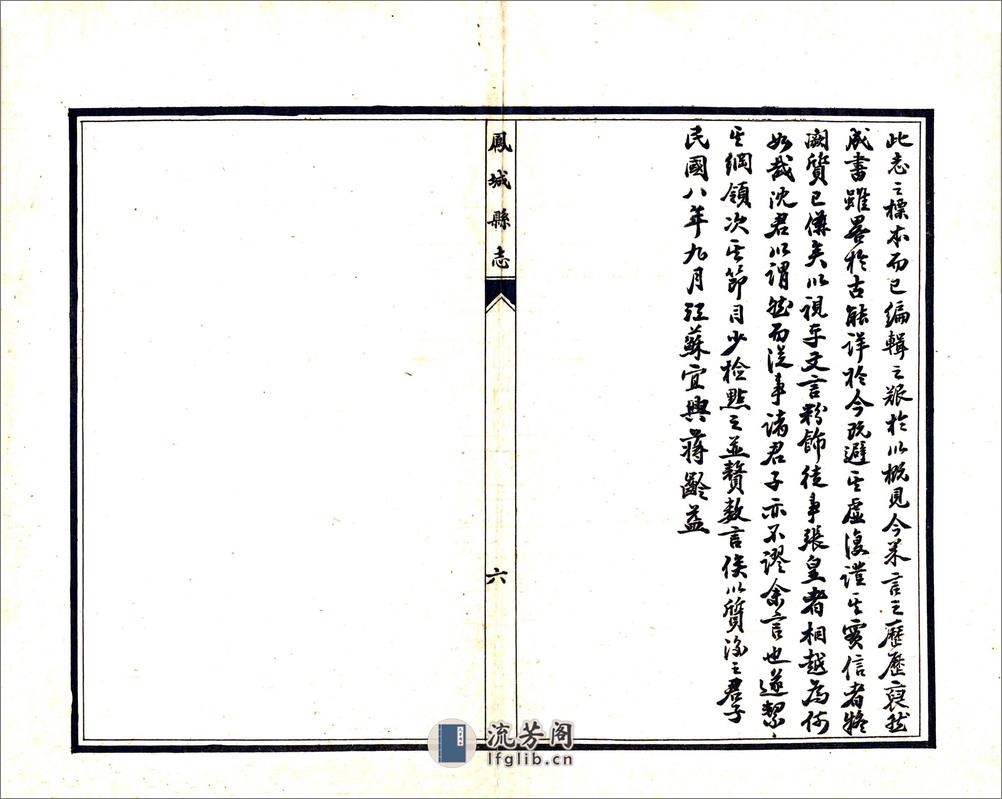 此志之標本而已編輯之艱於以概見今采言之歷歷裒然
成書雖畧於古能詳於今既避其虛復證其實信者將
闕質已備矣以視乎文言粉飾徒事張皇者相越為何
如哉沈君以謂然而從事諸君子亦不謬余言也遂挈
其綱領次其節目少檢點之並贅數言俟以質海之君子
民國八年九月江蘇宜興蔣齡益
鳳城縣志
六
流芳阁
lfglib.cn